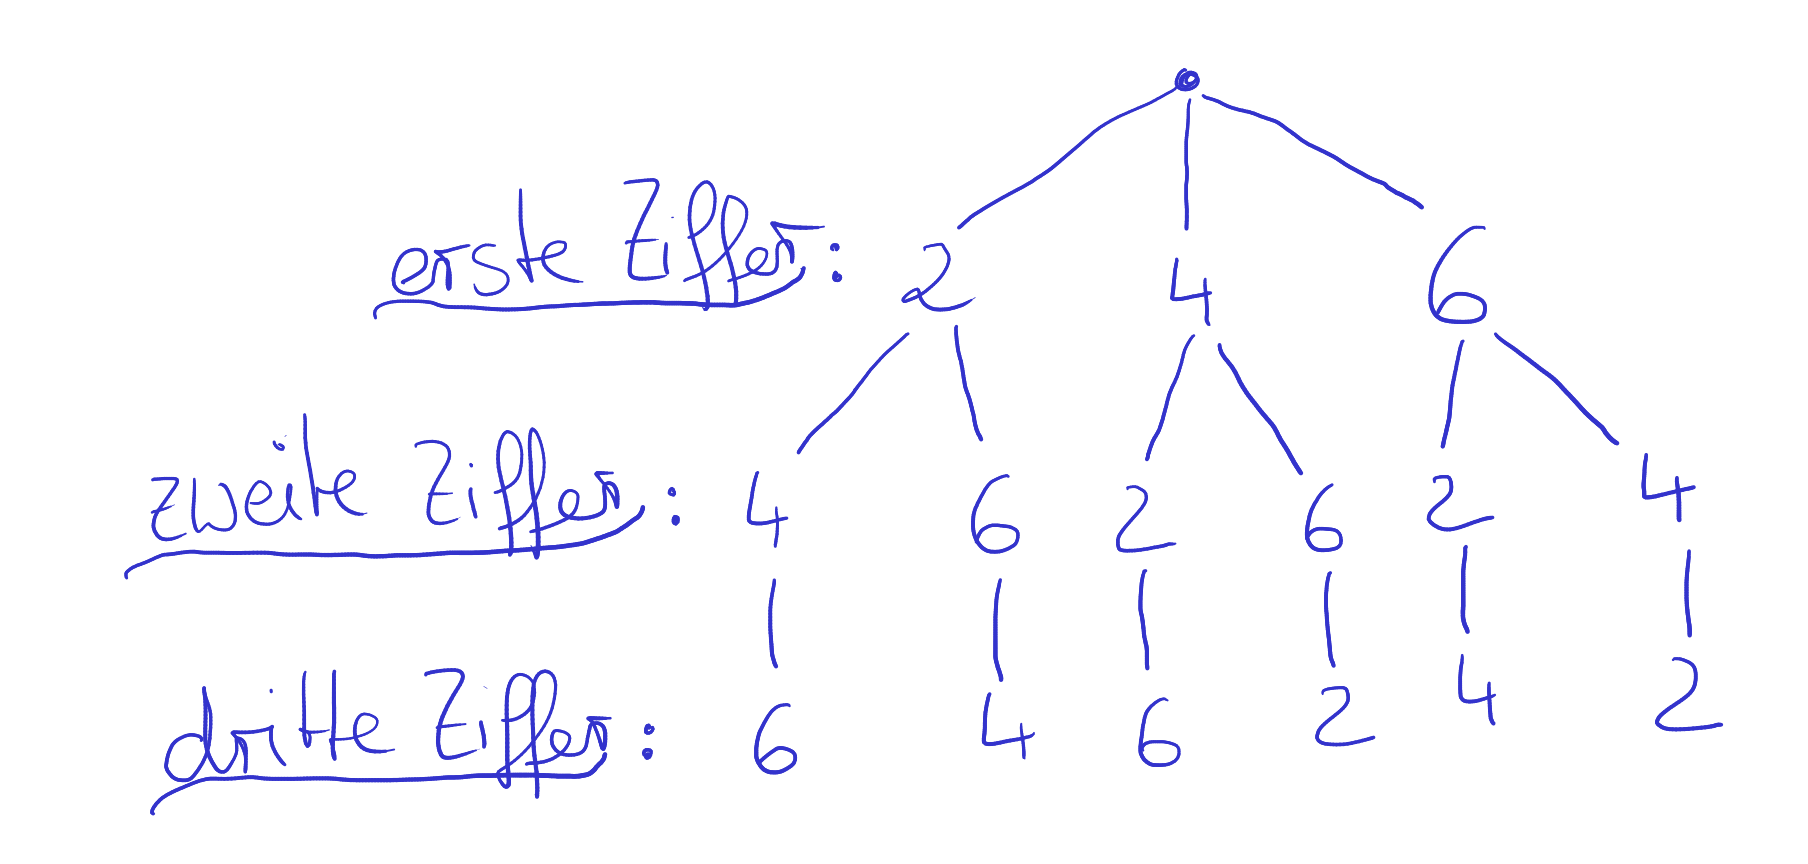 erste Ziffer: 2 4 6
zweite Ziffer: 4 6 2 6 2 4
dritte Ziffer: 6 4 6 2 4 2